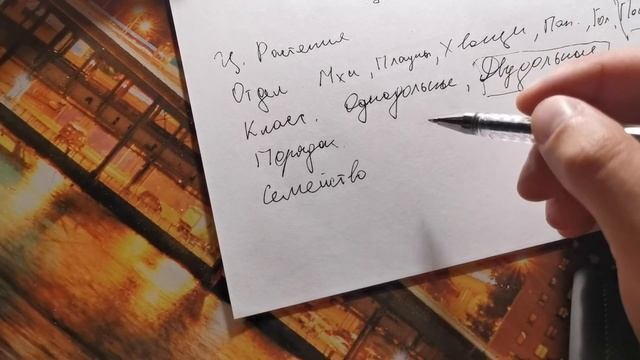 Ц. Растения
Отдел Мхи, Плауны, Хвощи, Пап., Гол.,
Класс. Однодольные, Двудольные
Порядок
Семейство